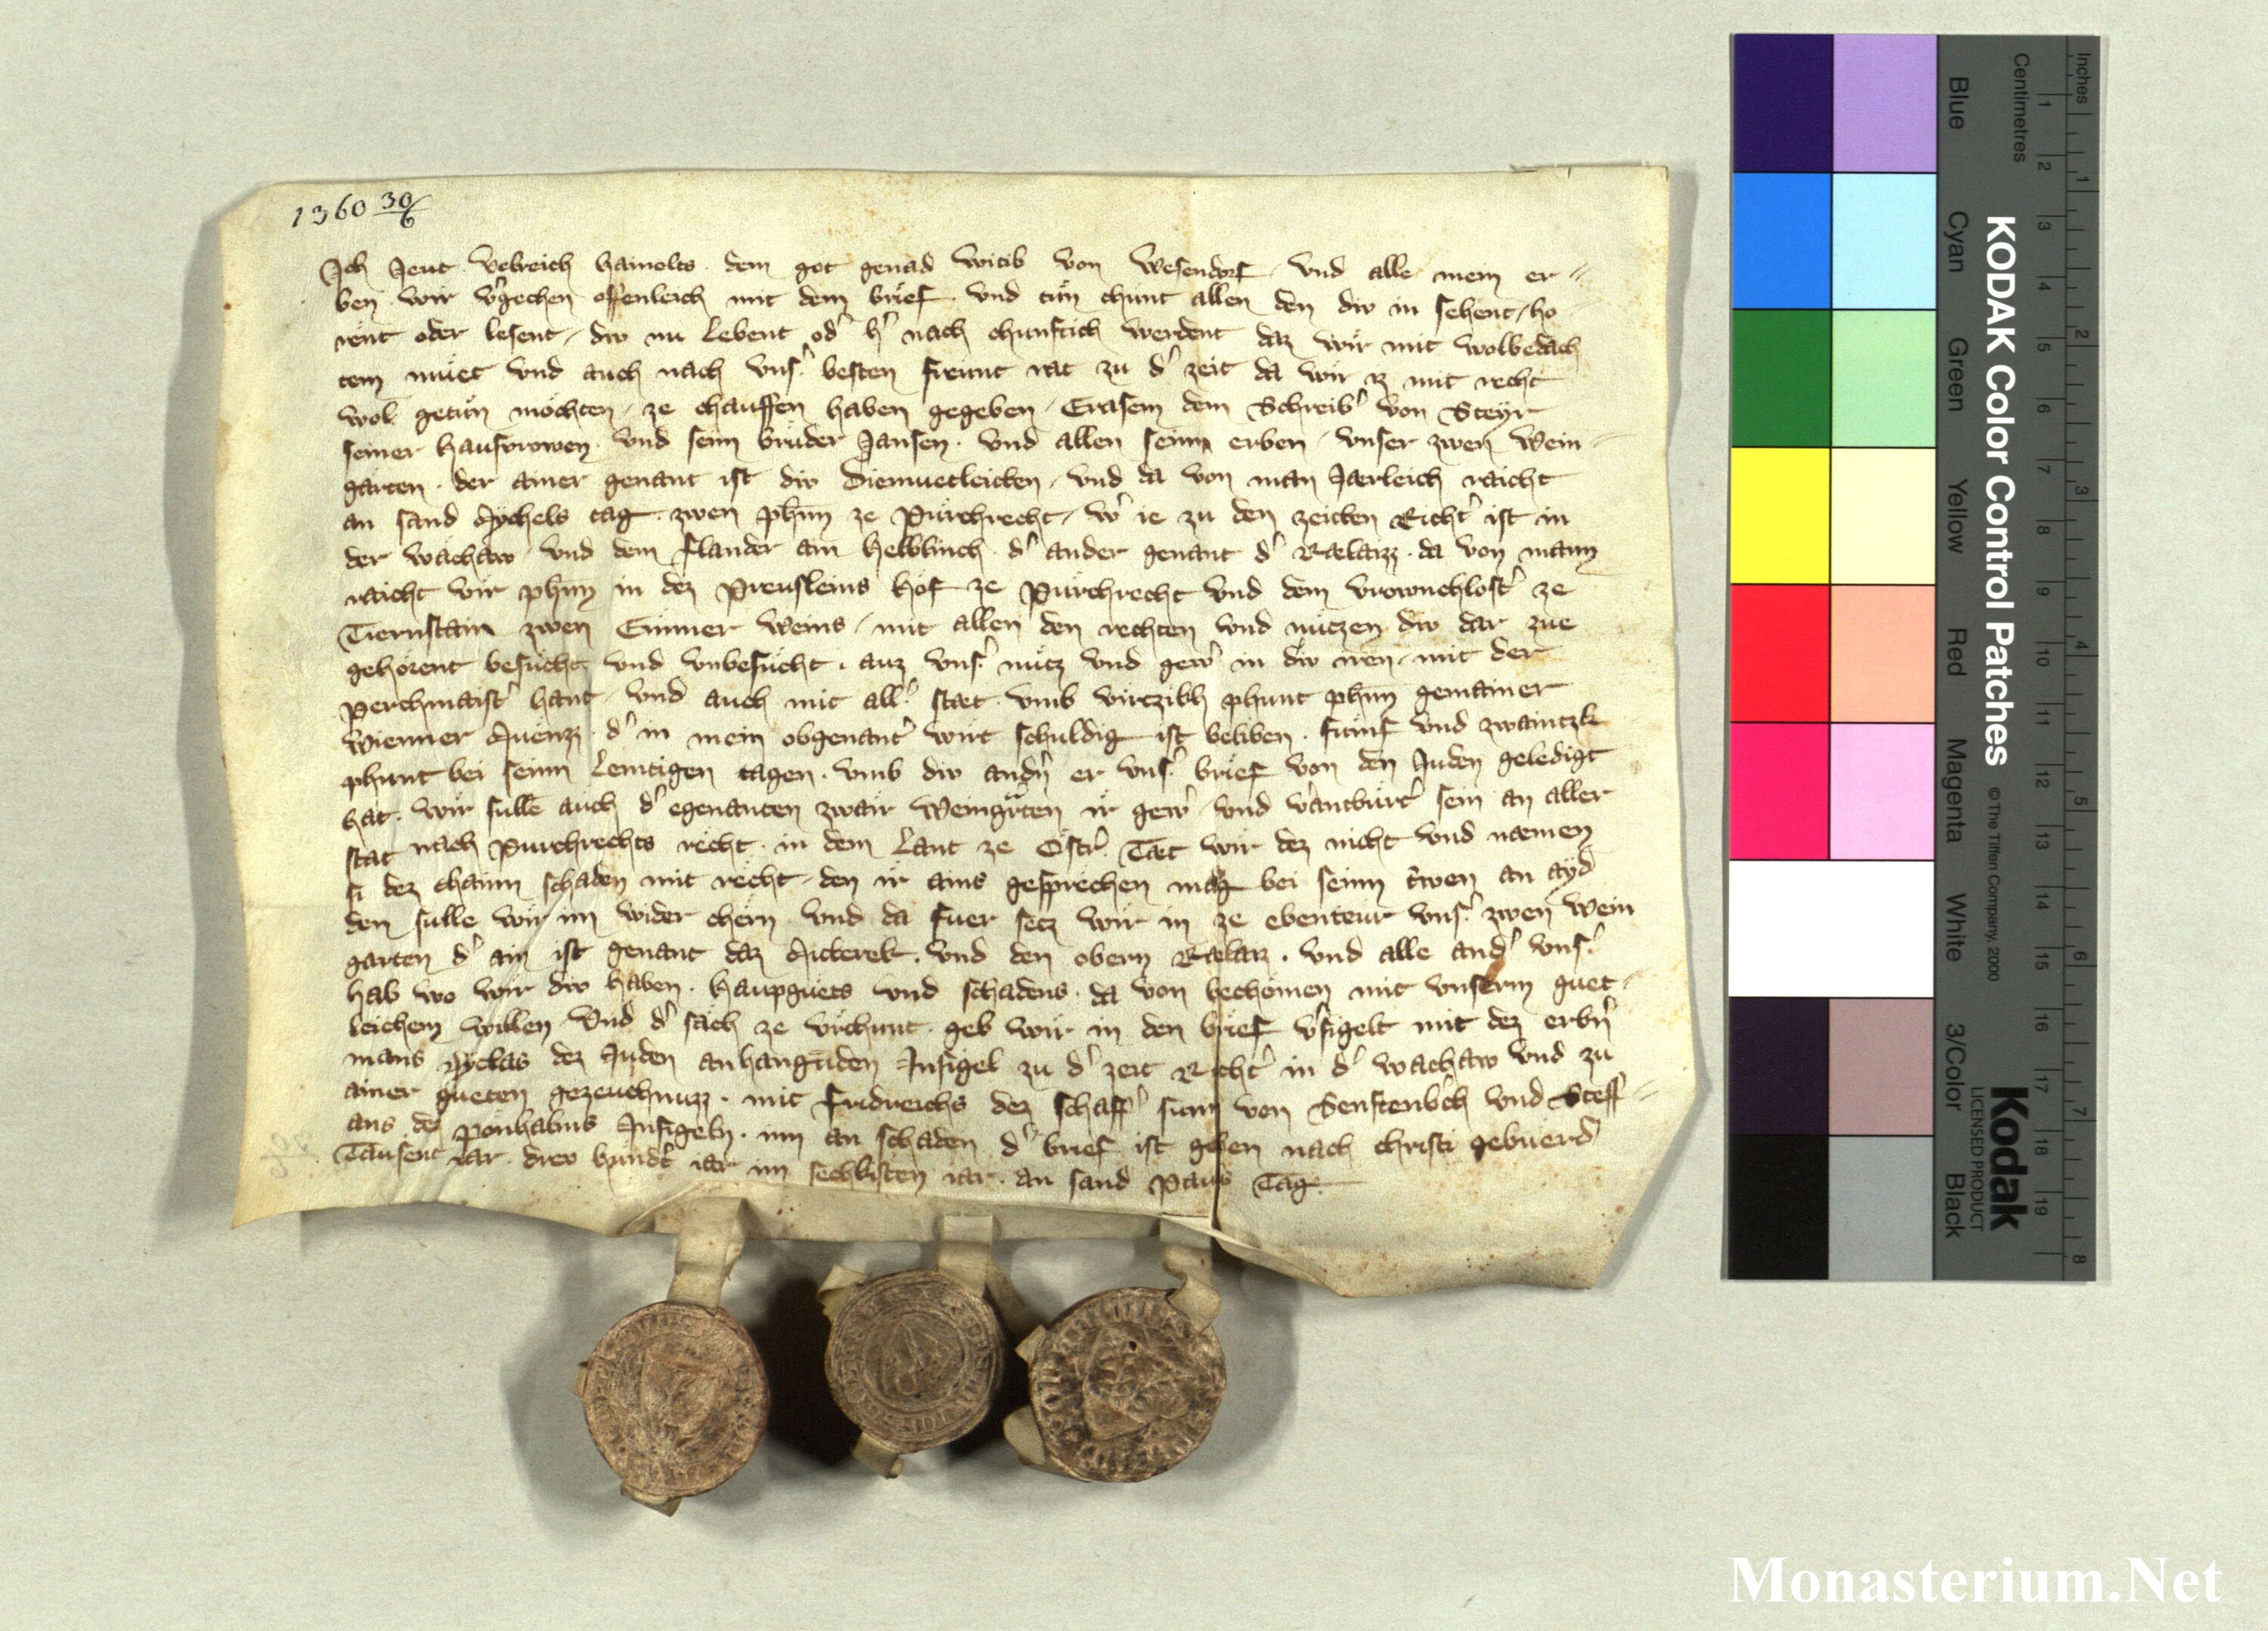 1360 30/6
Ich Jeut Velreich hainolts dem got genad witib von Wesendorf vnd alle mein er
ben wir v'gechen offenleich mit dem brief vnd tun chunt allen den div in sehent ho
rent oder lesent div nu lebent od' h' nach chunftich werdent daz wir mit wolbedach
tem muet vnd auch nach vns' besten freunt rat zu d' zeit da wir iz mit recht
wol getun mochten ze chauffen haben gegeben Erasem dem Schreib' von Steyr
seiner hausvrowen vnd seim bruder Jansen vnd allen seinn erben vnser zwen wein
garten der ainer genant ist div Diemuetleiten vnd da von man Jaerleich raicht
an sand Mychels tag zwen phenn ze Purchrecht w' ie zu den zeiten Richt' ist in
der wachaw vnd dem flander ain helblinch d' ander genant d' Raelaizz da von mann
raicht vir phenn in dez Preusleins hof ze Purchrecht vnd dem vrownchlost' ze
Tiernstain zwen Emmer weins mit allen den rechten vnd nutzen div dar zue
gehorent besucht vnd vnbesucht auz vns' nutz vnd gew' in div iren mit der
Perchmaist' hant vnd auch mit all' stat vmb virczikh phunt phenn gemainer
wienner Muenzz d' in mein obgenant' wirt schuldig ist beliben fumf vnd zwaintzk
phunt bei seinn lemtigen tagen vmb div andn er vns' brief von den Juden geledigt
hat wir sulle auch d' egenanten zwair weingarten ir gew' vnd v'antburt' sein an aller
stat nach Purchrechts recht in dem lant ze Ostr' Taet wir dez nicht vnd naemen
si dez chainn schaden mit recht den ir ains gesprechen mag bei seinn trwen an ayd
den sulle wir im wider chern vnd da fuer setz wir in ze ebenteur vns' zwen wein
garten d' ain ist genant daz Mitterek vnd den obern Raelaiz vnd alle and' vns'
hab wo wir div haben haupguets vnd schadens da von bechomen mit vnserm guet
leichem willen Vnd d' sach ze vrchunt geb wir in den brief v'sigelt mit dez erbn
mans Nyclas dez Juden anhangunden Insigel zu d' zeit Richt' in d' wachaw vnd zu
ainer gueten gezeuchnuzz mit fridreichs dez schaff' sunn von Senftenb'ch vnd Steff
ans dez ponhalms Insigeln im an schaden d' brief ist geben nach christi gebuerd
Tausent iar drev hund't iar im sechkisten iar an sand Pauls Tag
KODAK Color Control Patches
© The Tiffen Company, 2000
Kodak
LICENSED PRODUCT
Inches
1 2 3 4 5 6 7 8
Centimetres
1 2 3 4 5 6 7 8 9 10 11 12 13 14 15 16 17 18 19
Blue Cyan Green Yellow Red Magenta White 3/Color Black
Monasterium.Net